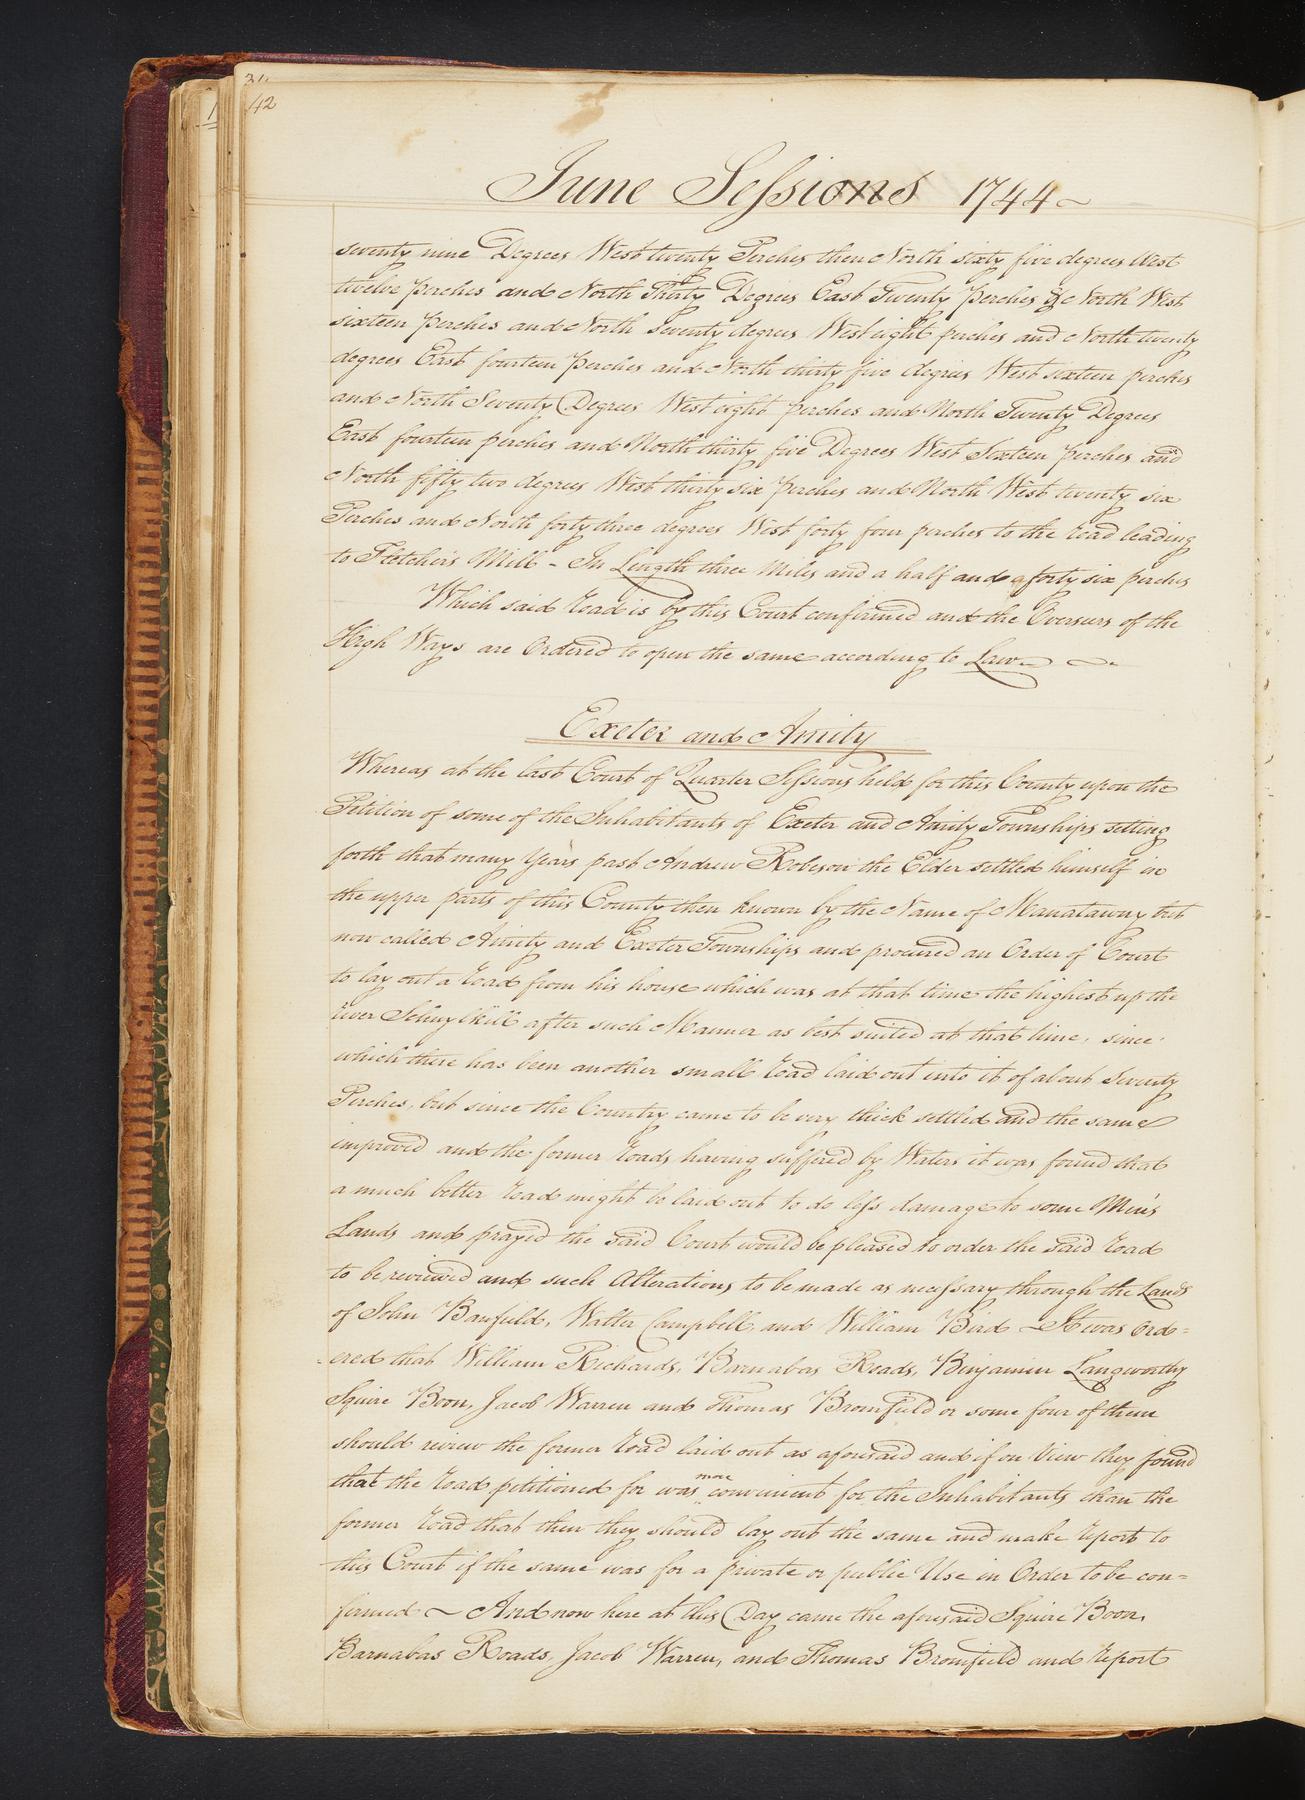 42
June Sessions 1744
seventy nine Degrees West twenty Perches then North sixty five degrees West
twelve perches and North Thirty Degrees East Twenty perches & North West
sixteen perches and North seventy degrees West eight perches and North twenty
degrees East fourteen perches and North thirty five degrees West sixteen perches
and North Seventy Degrees West eight perches and North Twenty Degrees
East fourteen perches and North thirty five Degrees West Sixteen perches and
North fifty two degrees West thirty six perches and North West twenty six
Perches and North forty three degrees West forty four perches to the road leading
to Fletcher's Mill - In Length three Miles and a half and forty six perches
Which said road is by this Court confirmed and the Overseers of the
High Ways are Ordered to open the same according to Law
Exeter and Amity
Whereas at the last Court of Quarter Sessions held for this County upon the
Petition of some of the Inhabitants of Exeter and Amity Townships setting
forth that many Years past Andrew Robeson the Elder settled himself in
the upper parts of this County then known by the Name of Manatawny but
now called Amity and Exeter Townships and procured an Order of Court
to lay out a road from his house which was at that time the highest up the
river Schuylkill after such Manner as best suited at that time, since
which there has been another small road laid out into it of about seventy
Perches, but since the Country came to be very thick settled and the same
improved and the former roads having suffered by Waters it was found that
a much better road might be laid out to do less damage to some Men's
Lands and prayed the said Court would be pleased to order the said road
to be reviewed and such Alterations to be made as necessary through the Lands
of John Banfield, Walter Campbell, and William Bird - It was Ord=
ered that William Richards, Barnabas Roads, Benjamin Langworthy
Squire Boon, Jacob Warren and Thomas Bromfield or some four of them
should review the former road laid out as aforesaid and if on View they found
that the road petitioned for was more convenient for the Inhabitants than the
former road that then they should lay out the same and make report to
this Court if the same was for a private or public Use in Order to be con=
firmed ~ And now here at this Day came the aforesaid Squire Boon,
Barnabas Roads, Jacob Warren, and Thomas Bromfield and report